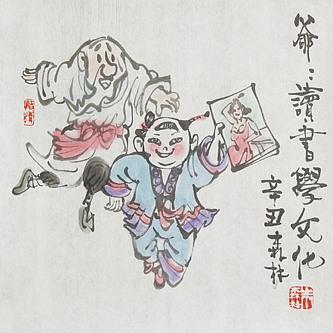 爺〻讀書學文化
辛丑森林